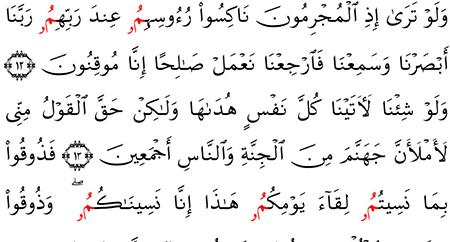 وَلَوْ تَرَىٰٓ إِذِ اِ۬لْمُجْرِمُونَ نَاكِسُواْ رُءُوسِهِمُۥ عِندَ رَبِّهِمُۥ رَبَّنَا
أَبْصَرْنَا وَسَمِعْنَا فَارْجِعْنَا نَعْمَلْ صَٰلِحًا إِنَّا مُوقِنُونَ ۝١٢
وَلَوْ شِئْنَا لَأٓتَيْنَا كُلَّ نَفْسٍ هُدَىٰهَا وَلَٰكِنْ حَقَّ اَ۬لْقَوْلُ مِنِّي
لَأَمْلَأَنَّ جَهَنَّمَ مِنَ اَ۬لْجِنَّةِ وَالنَّاسِ أَجْمَعِينَ ۝١٣ فَذُوقُواْ
بِمَا نَسِيتُمُۥ لِقَآءَ يَوْمِكُمُۥ هَٰذَا إِنَّا نَسِينَٰكُمُۥ ۖ وَذُوقُواْ